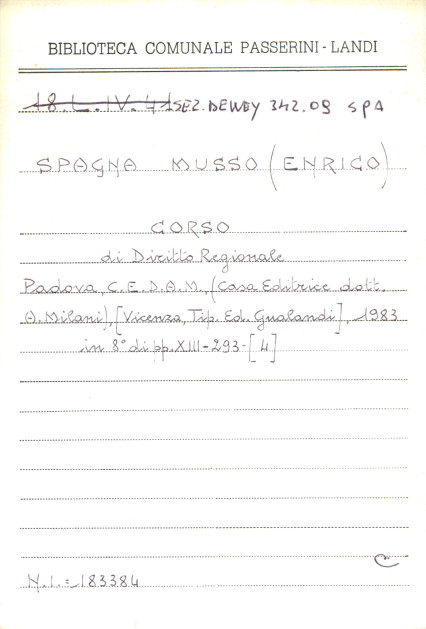 BIBLIOTECA COMUNALE PASSERINI - LANDI
18.L.IV.41 SEZ. DEWEY 342.09 SPA
SPAGNA MUSSO (ENRICO)
CORSO
di Diritto Regionale
Padova, C.E.D.A.M., (Casa Editrice dott.
A. Milani), [Vicenza, Tip. Ed. Gualandi], 1983
in 8° di pp. XIII - 293 - [4]
N.I. = 183384